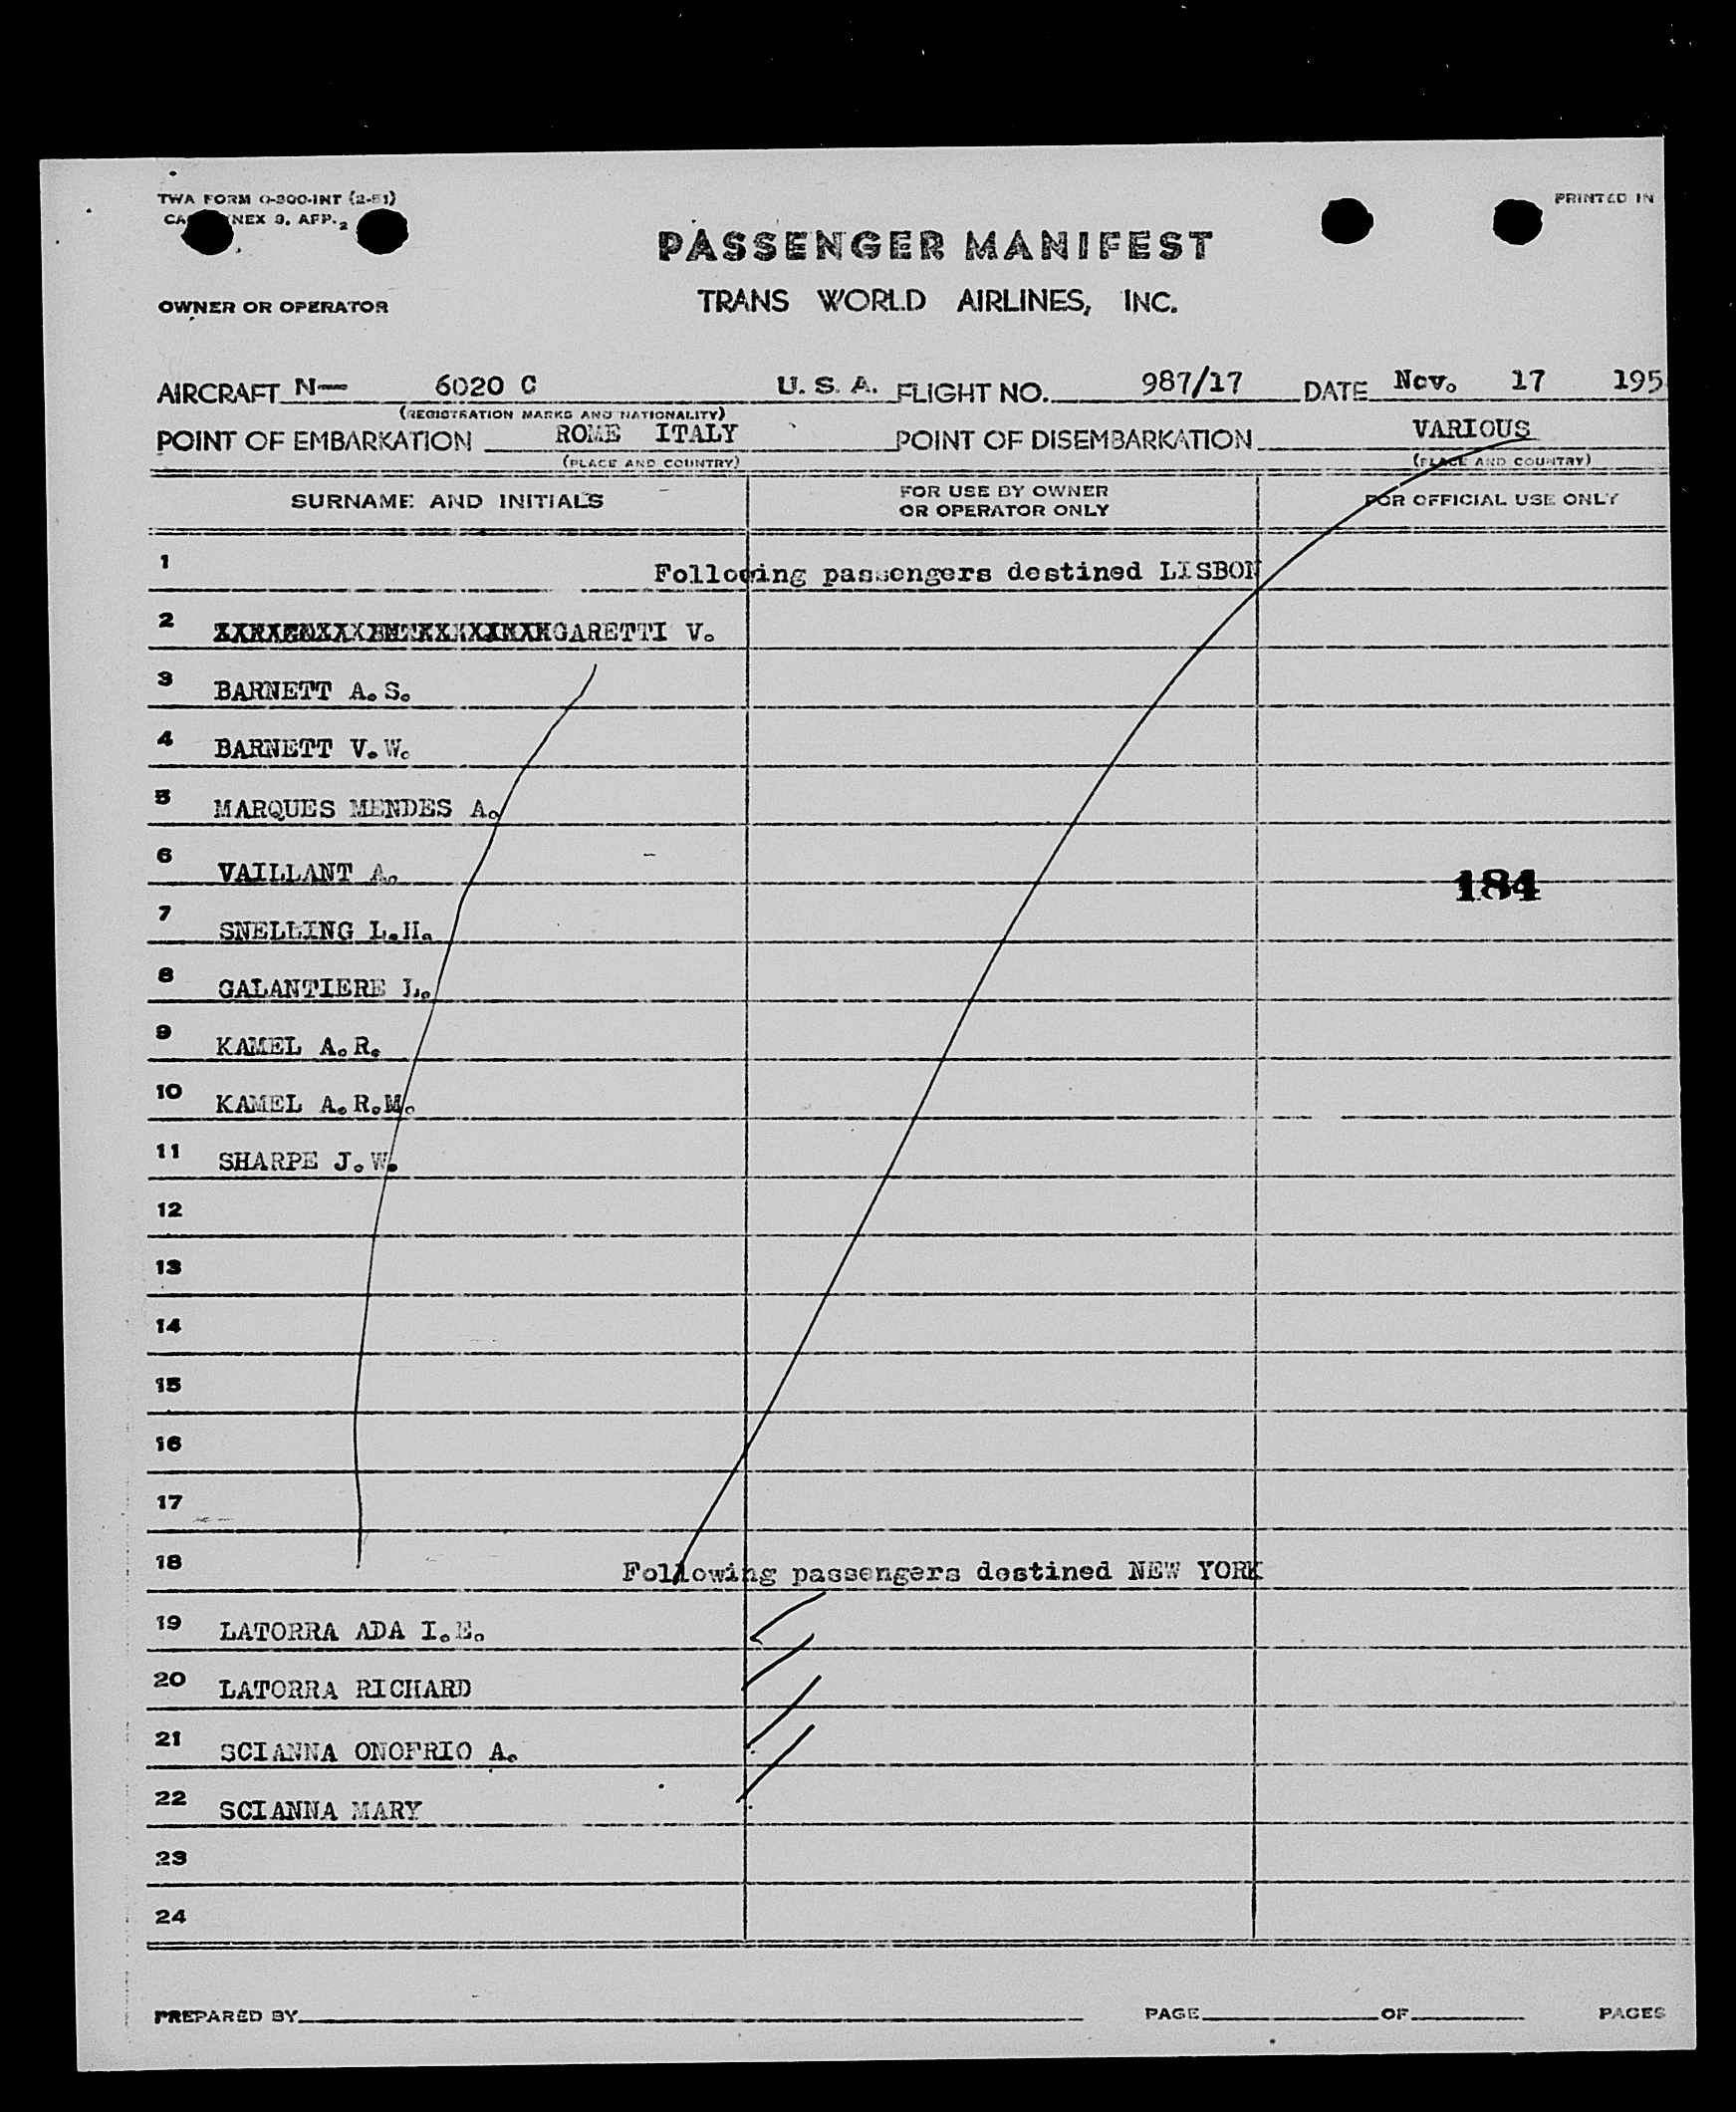 TWA FORM O-300-INT (2-51)
NEX 9, APP. 2
PRINTED IN
PASSENGER MANIFEST
TRANS WORLD AIRLINES, INC.
OWNER OR OPERATOR
AIRCRAFT N— 6020 C U. S. A. FLIGHT NO. 987/17 DATE Nov. 17 195
(REGISTRATION MARKS AND NATIONALITY)
POINT OF EMBARKATION ROME ITALY POINT OF DISEMBARKATION VARIOUS
(PLACE AND COUNTRY) (PLACE AND COUNTRY)
SURNAME AND INITIALS FOR USE BY OWNER OR OPERATOR ONLY FOR OFFICIAL USE ONLY
1 Following passengers destined LISBON
2 GARETTI V.
3 BARNETT A.S.
4 BARNETT V.W.
5 MARQUES MENDES A.
6 VAILLANT A.
184
7 SNELLING L.H.
8 GALANTIERE L.
9 KAMEL A.R.
10 KAMEL A.R.M.
11 SHARPE J.W.
12
13
14
15
16
17
18 Following passengers destined NEW YORK
19 LATORRA ADA I.E.
20 LATORRA RICHARD
21 SCIANNA ONOFRIO A.
22 SCIANNA MARY
23
24
PREPARED BY PAGE OF PAGES